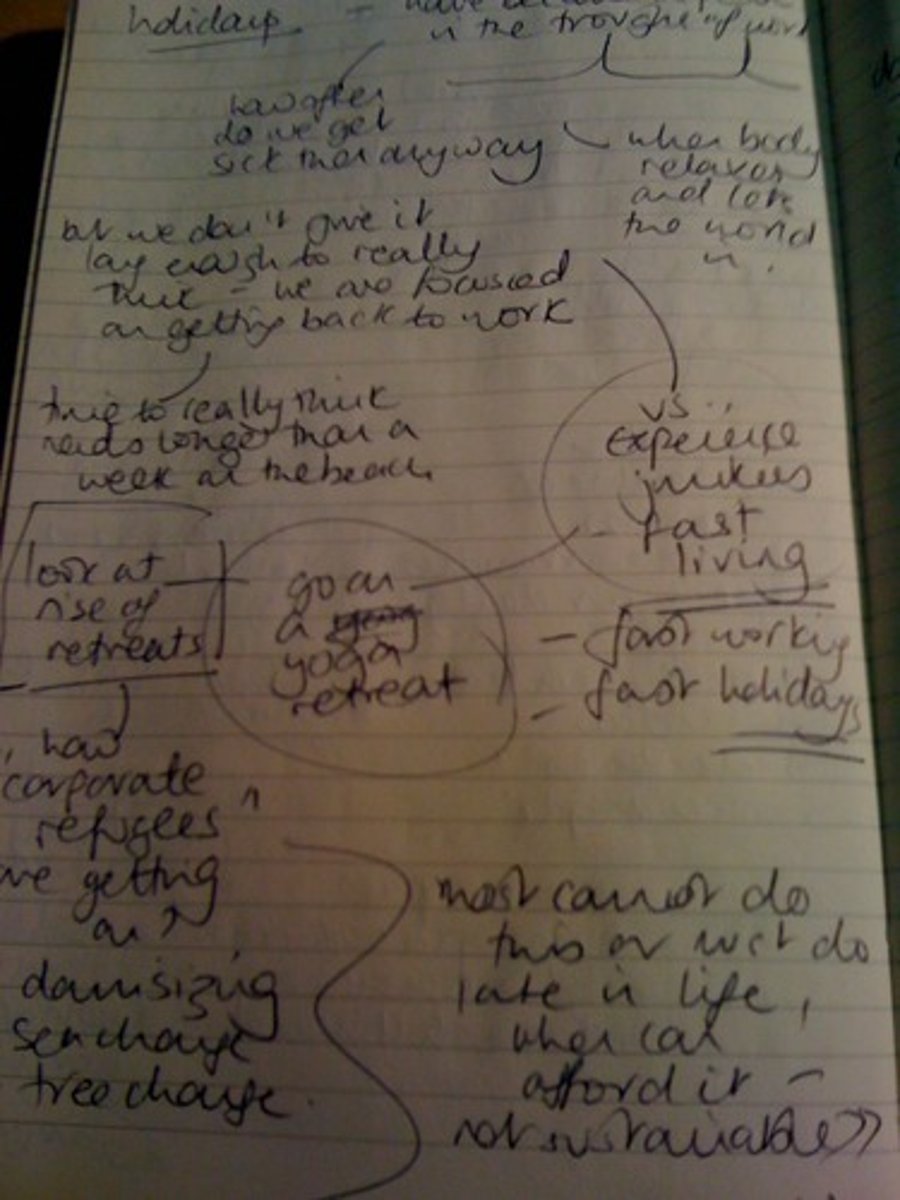 holidays -
in the troughs of work
how often
do we get
sick then anyway
when body
relaxes
and lets
the world
in.
but we don't give it
long enough to really
think - we are focused
on getting back to work
time to really think
needs longer than a
week at the beach.
vs..
experience
junkies
- fast
living
look at
rise of
retreats
go on
a
yoga
retreat
- fast working
- fast holidays
how
corporate
refugees
are getting
on?
downsizing
seachange
treechange.
most cannot do
this or must do
late in life,
when can
afford it -
not sustainable